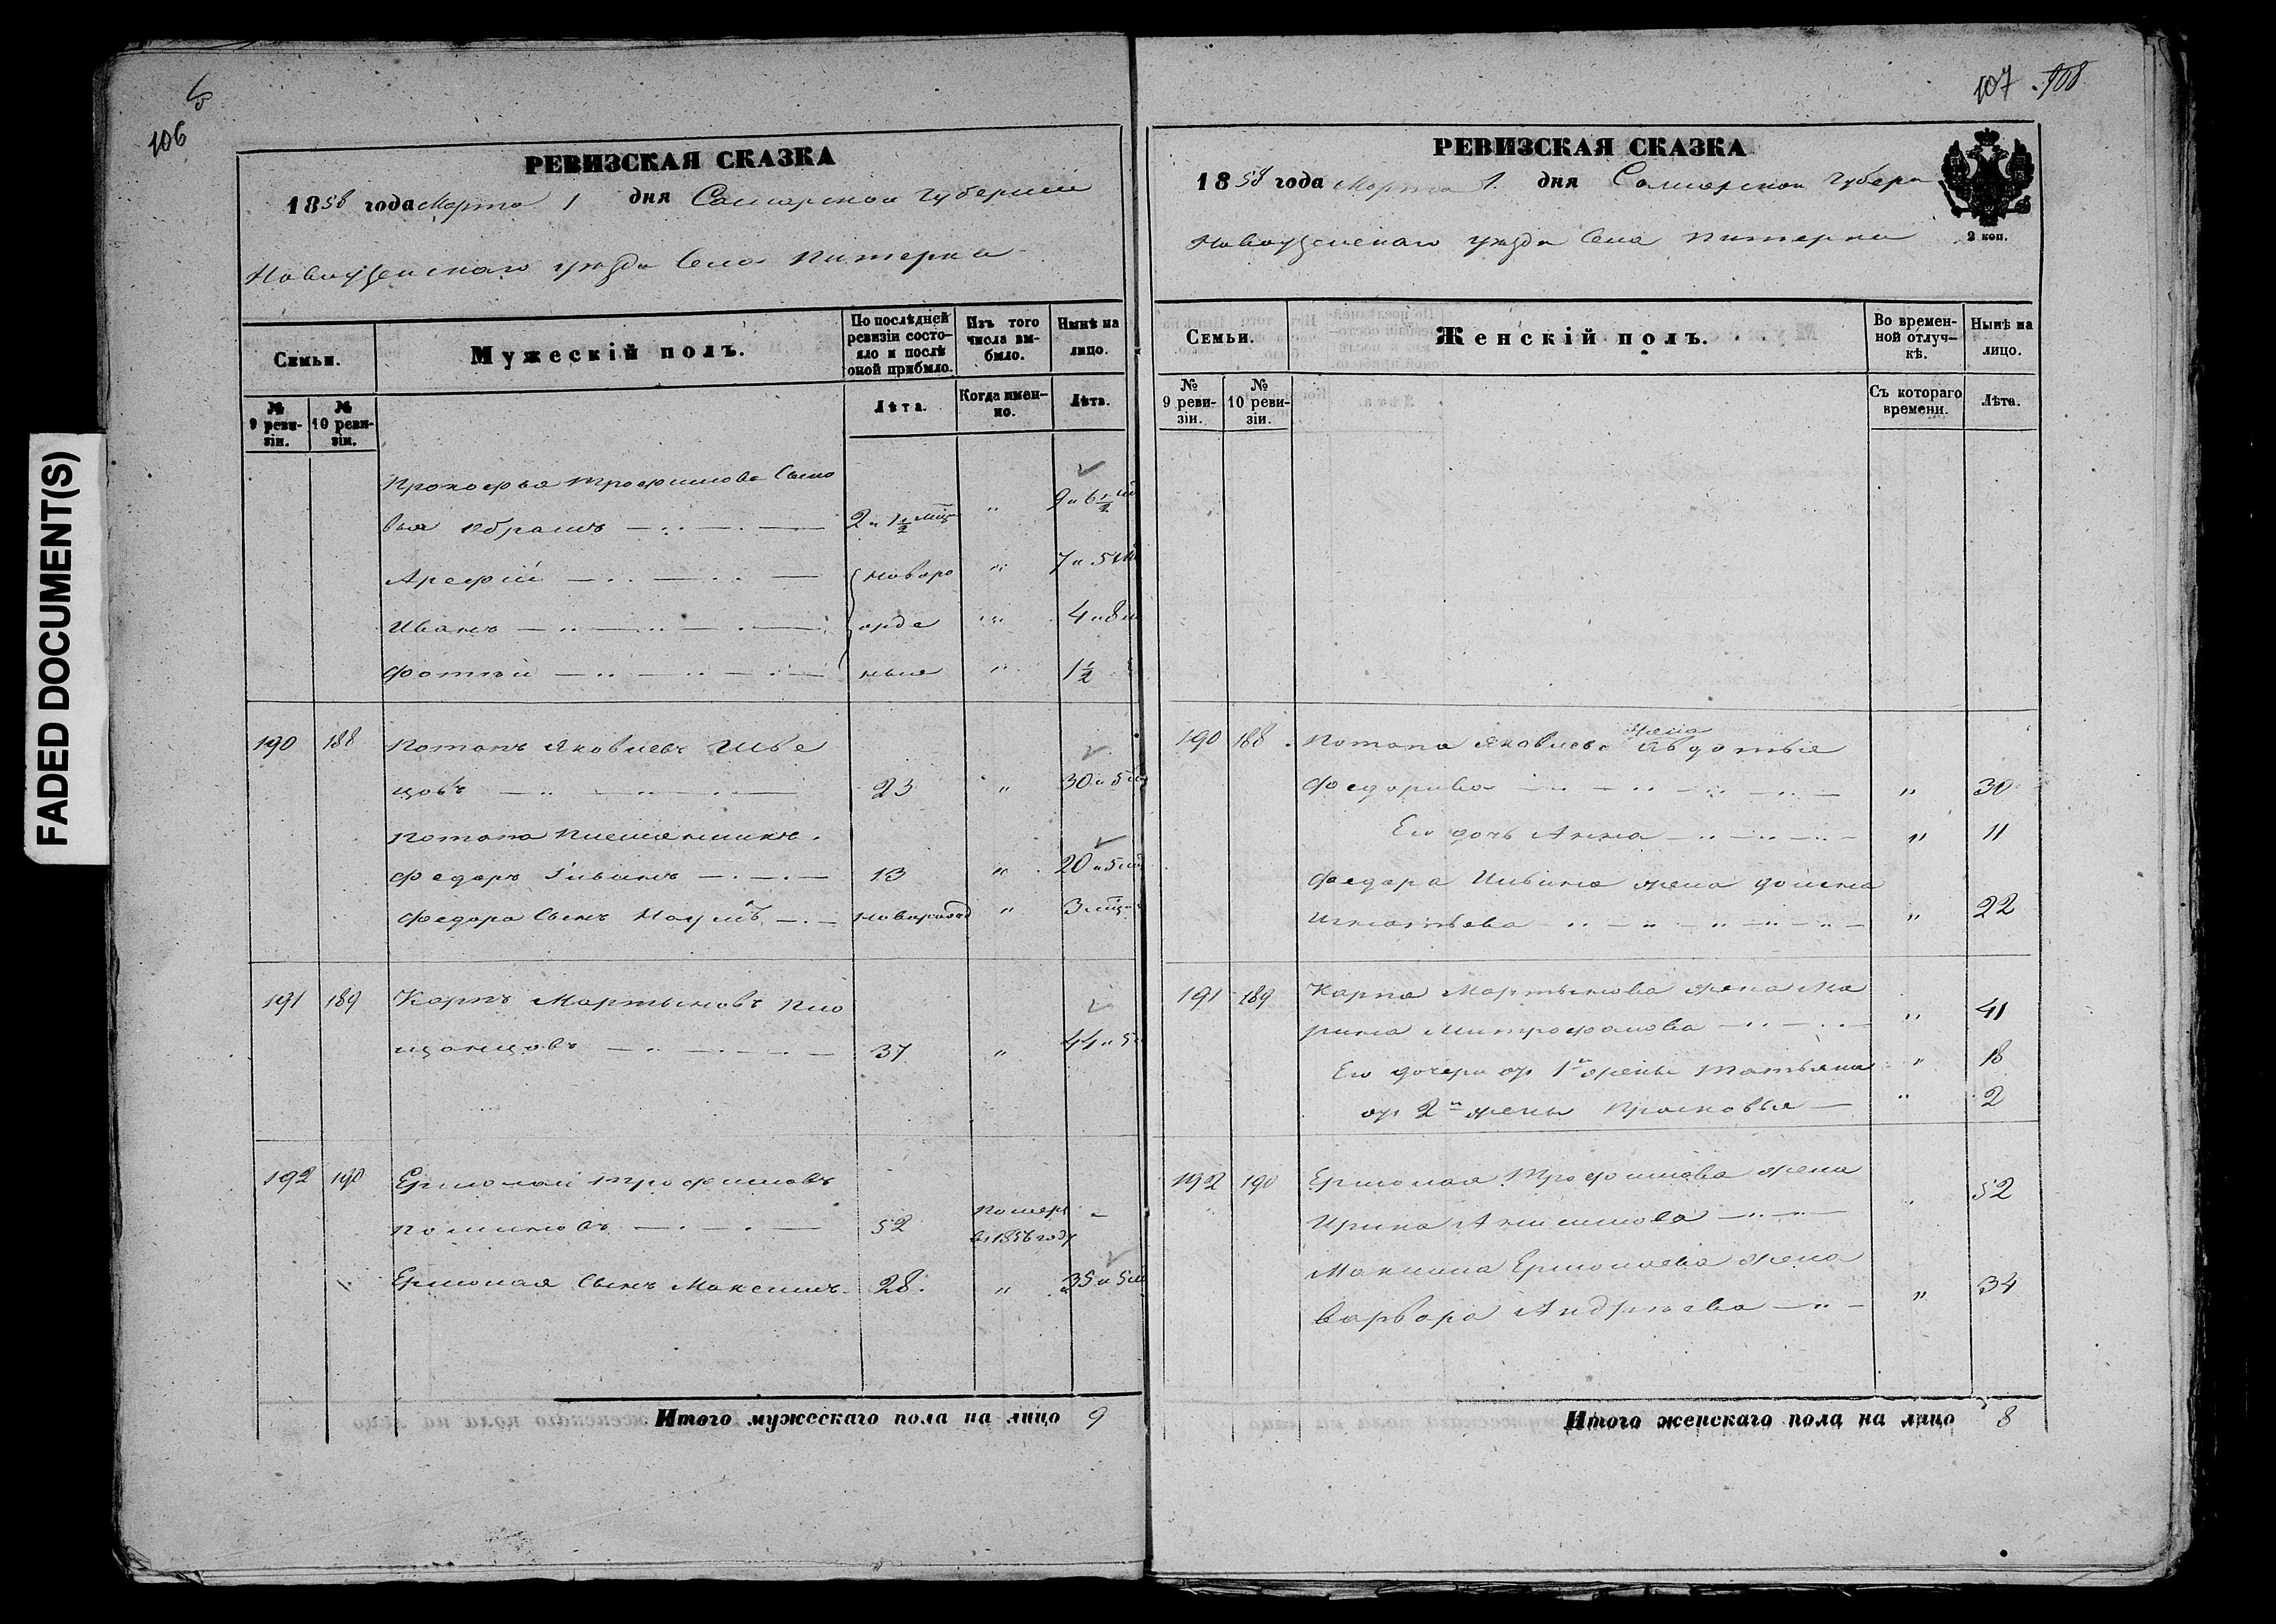 FADED DOCUMENT(S)
106
РЕВИЗСКАЯ СКАЗКА
1858 года Марта 1 дня Самарской Губернии
Новоузенскаго уѣзда Села Питерки
Семьи.
Мужескій полъ.
По послѣдней ревизіи состояло и послѣ оной прибыло.
Изъ того числа выбыло.
Нынѣ на лицо.
№ 9 ревизіи.
№ 10 ревизіи.
Лѣта.
Когда именно.
Лѣта.
Прокофья Трофимова Сыно
вья Абрамъ 2 и 1½ мѣс „ 9 и 6½ м
Арефій новоро „ 7 и 5 м
Иванъ жде „ 4 и 8 м
Фотѣй ные „ 1½
190 188 Потапъ Яковлевъ Шве
цовъ 23 „ 30 и 5 м
Потапа племянникъ
Федоръ Ильинъ 13 „ 20 и 5 м
Федора Сынъ Наумъ новорожд „ 3 мѣс
191 189 Карпъ Мартыновъ Пло
щанцовъ 37 „ 44 и 5
192 190 Ермолай Трофимовъ
52 Померъ в 1856 году -
Ермолая Сынъ Максимъ 28 „ 35 и 5 м
Итого мужескаго пола на лицо 9
107 108
РЕВИЗСКАЯ СКАЗКА
1858 года Марта 1 дня Самарской Губерн
Новоузенскаго уѣзда Села Питерки
2 коп.
Семьи.
Женскій полъ.
Во временной отлучкѣ.
Нынѣ на лицо.
№ 9 ревизіи.
№ 10 ревизіи.
Съ котораго времени.
Лѣта.
190 188 Потапа Яковлева жена Авдотья
Федорова „ 30
Его дочь Анна „ 11
Федора Ильина жена Домна
Игнатьева „ 22
191 189 Карпа Мартынова жена Ма
рина Митрофанова „ 41
Его дочери от 1й жены Татьяна „ 18
от 2й жены Прасковья „ 2
192 190 Ермолая Трофимова жена
Ирина Анисимова 52
Максима Ермолаева жена
Варвара Андрѣева „ 34
Итого женскаго пола на лицо 8